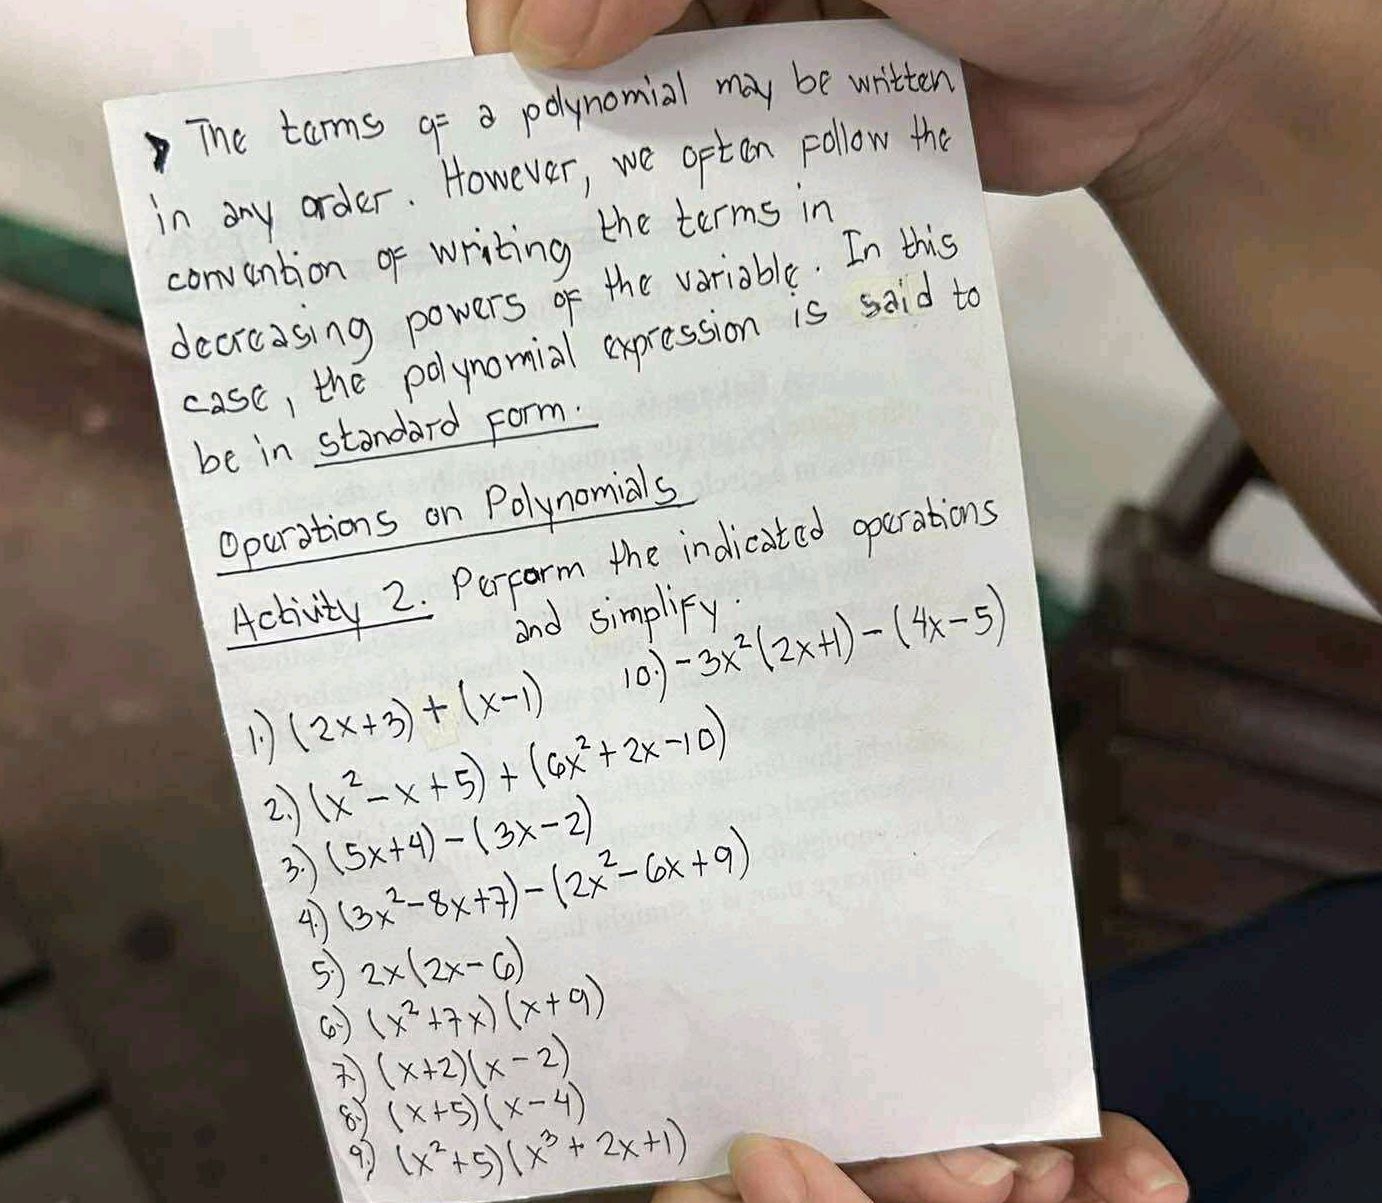 The terms of a polynomial may be written
in any order. However, we often follow the
convention of writing the terms in
decreasing powers of the variable. In this
case, the polynomial expression is said to
be in standard form.
Operations on Polynomials
Activity 2. Perform the indicated operations
and simplify.
1.) (2x+3) + (x-1)
2.) (x²-x+5) + (6x²+2x-10)
3.) (5x+4) - (3x-2)
4.) (3x²-8x+7) - (2x²-6x+9)
5.) 2x(2x-6)
6.) (x²+7x)(x+9)
7.) (x+2)(x-2)
8.) (x+5)(x-4)
9.) (x²+5)(x³+2x+1)
10.) -3x²(2x+1) - (4x-5)